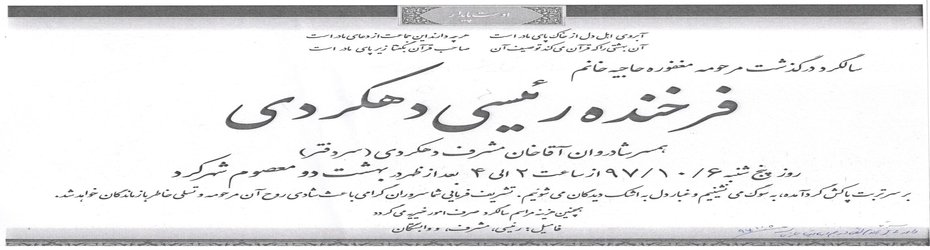 اوست پایدار
آبروی اهل دل از خاک پای مادر است هرچه دارند این جماعت از دعای مادر است
آن بهشتی را که قرآن می کند توصیف آن صاحب قرآن بگفتا زیر پای مادر است
سالگرد درگذشت مرحومه مغفوره حاجیه خانم
فرخنده رئیسی دهکردی
همسر شادروان آقاخان مشرف دهکردی (سردفتر)
روز پنج شنبه ۹۷/۱۰/۶ از ساعت ۲ الی ۴ بعد از ظهر در بهشت دو معصوم شهرکرد
بر سر تربت پاکش گرد آمده، به سوگ می نشینیم و غبار دل به اشک دیدگان می شوئیم. تشریف فرمایی شما سروران گرامی باعث شادی روح آن مرحومه و تسلی خاطر بازماندگان خواهد شد.
همچنین هزینه مراسم سالگرد صرف امور خیریه می گردد
فامیل: رئیسی، مشرف، و وابستگان